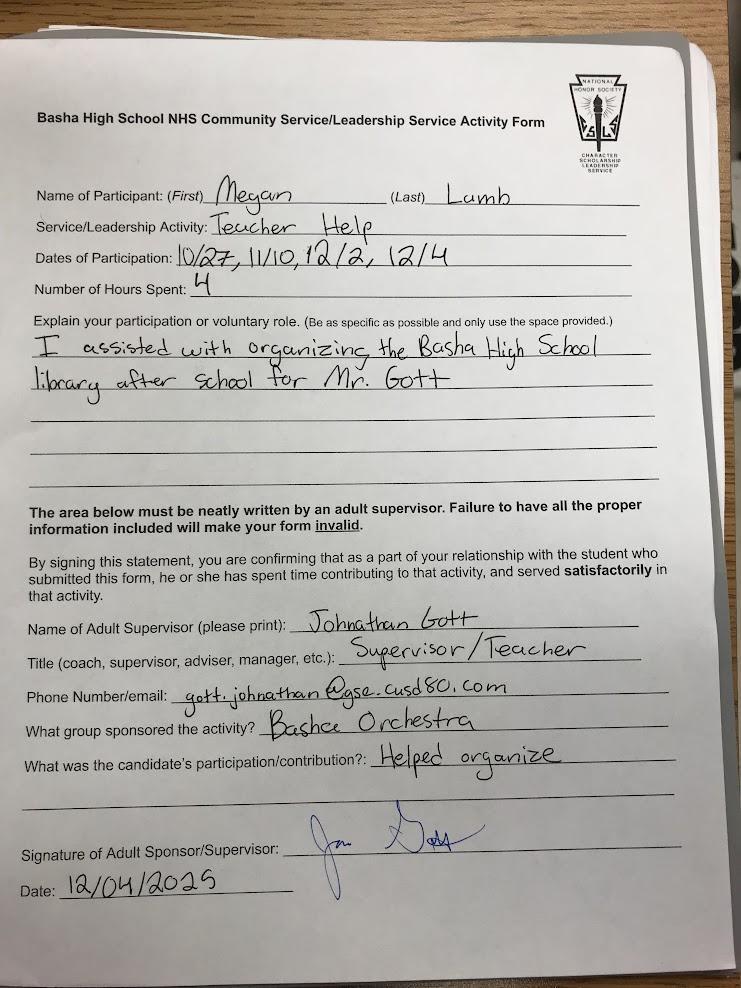 NATIONAL
HONOR SOCIETY
CHARACTER
SCHOLARSHIP
LEADERSHIP
SERVICE
Basha High School NHS Community Service/Leadership Service Activity Form
Name of Participant: (First) Megan (Last) Lamb
Service/Leadership Activity: Teacher Help
Dates of Participation: 10/27, 11/10, 12/2, 12/4
Number of Hours Spent: 4
Explain your participation or voluntary role. (Be as specific as possible and only use the space provided.)
I assisted with organizing the Basha High School
library after school for Mr. Gott
The area below must be neatly written by an adult supervisor. Failure to have all the proper
information included will make your form invalid.
By signing this statement, you are confirming that as a part of your relationship with the student who
submitted this form, he or she has spent time contributing to that activity, and served satisfactorily in
that activity.
Name of Adult Supervisor (please print): Johnathan Gott
Title (coach, supervisor, adviser, manager, etc.): Supervisor/Teacher
Phone Number/email: gott.johnathan@gse.cusd80.com
What group sponsored the activity? Basha Orchestra
What was the candidate's participation/contribution?: Helped organize
Signature of Adult Sponsor/Supervisor:
Date: 12/04/2025